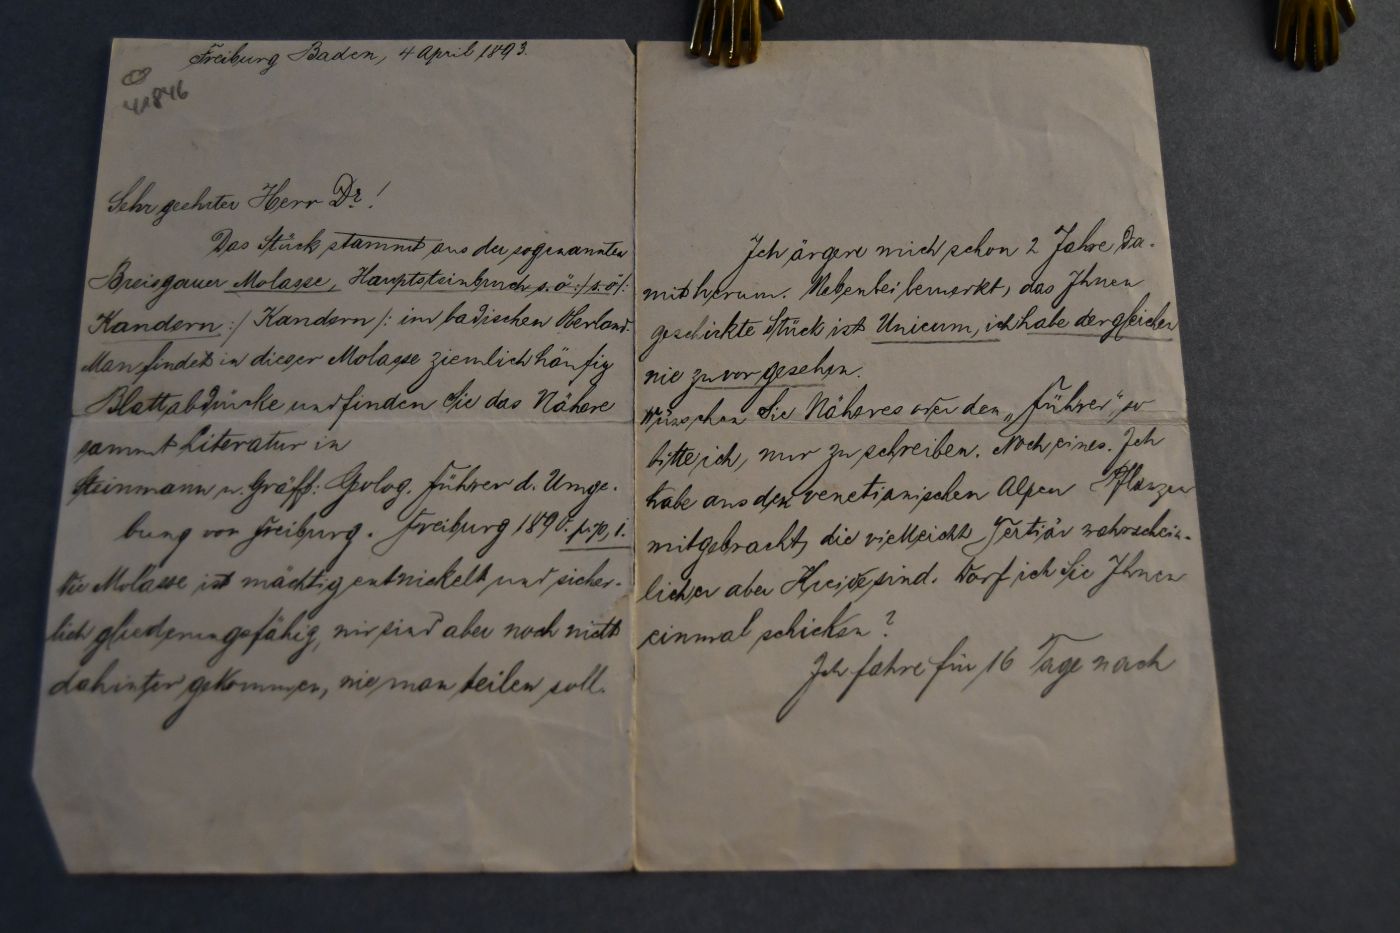 Freiburg Baden, 4 April 1893.
41846
Sehr geehrter Herr Dr!
Das Stück stammt aus der sogenannten
Breisgauer Molasse, Hauptsteinbruch s. ö :/ s. ö /:
Kandern :/ Kandern /: im badischen Oberland.
Man findet in dieser Molasse ziemlich häufig
Blattabdrücke und finden Sie das Nähere
sammt Literatur in
Steinmann u. Gräff: Geolog. Führer d. Umge-
bung von Freiburg. Freiburg 1890.
Die Molasse ist mächtig entwickelt und sicher-
lich gliederungsfähig, wir sind aber noch nicht
dahinter gekommen, wie man teilen soll.
Ich ärgere mich schon 2 Jahre da-
mit herum. Nebenbei bemerkt, das Ihnen
geschickte Stück ist Unicum, ich habe dergleichen
nie zuvor gesehen.
Wünschen Sie Näheres oder den „Führer", so
bitte ich, nur zu schreiben. Noch eines. Ich
habe aus den venetianischen Alpen Pflanzen
mitgebracht, die vielleicht Tertiär wahrschein-
licher aber Kreide sind. Darf ich Sie Ihnen
einmal schicken?
Ich fahre für 16 Tage nach